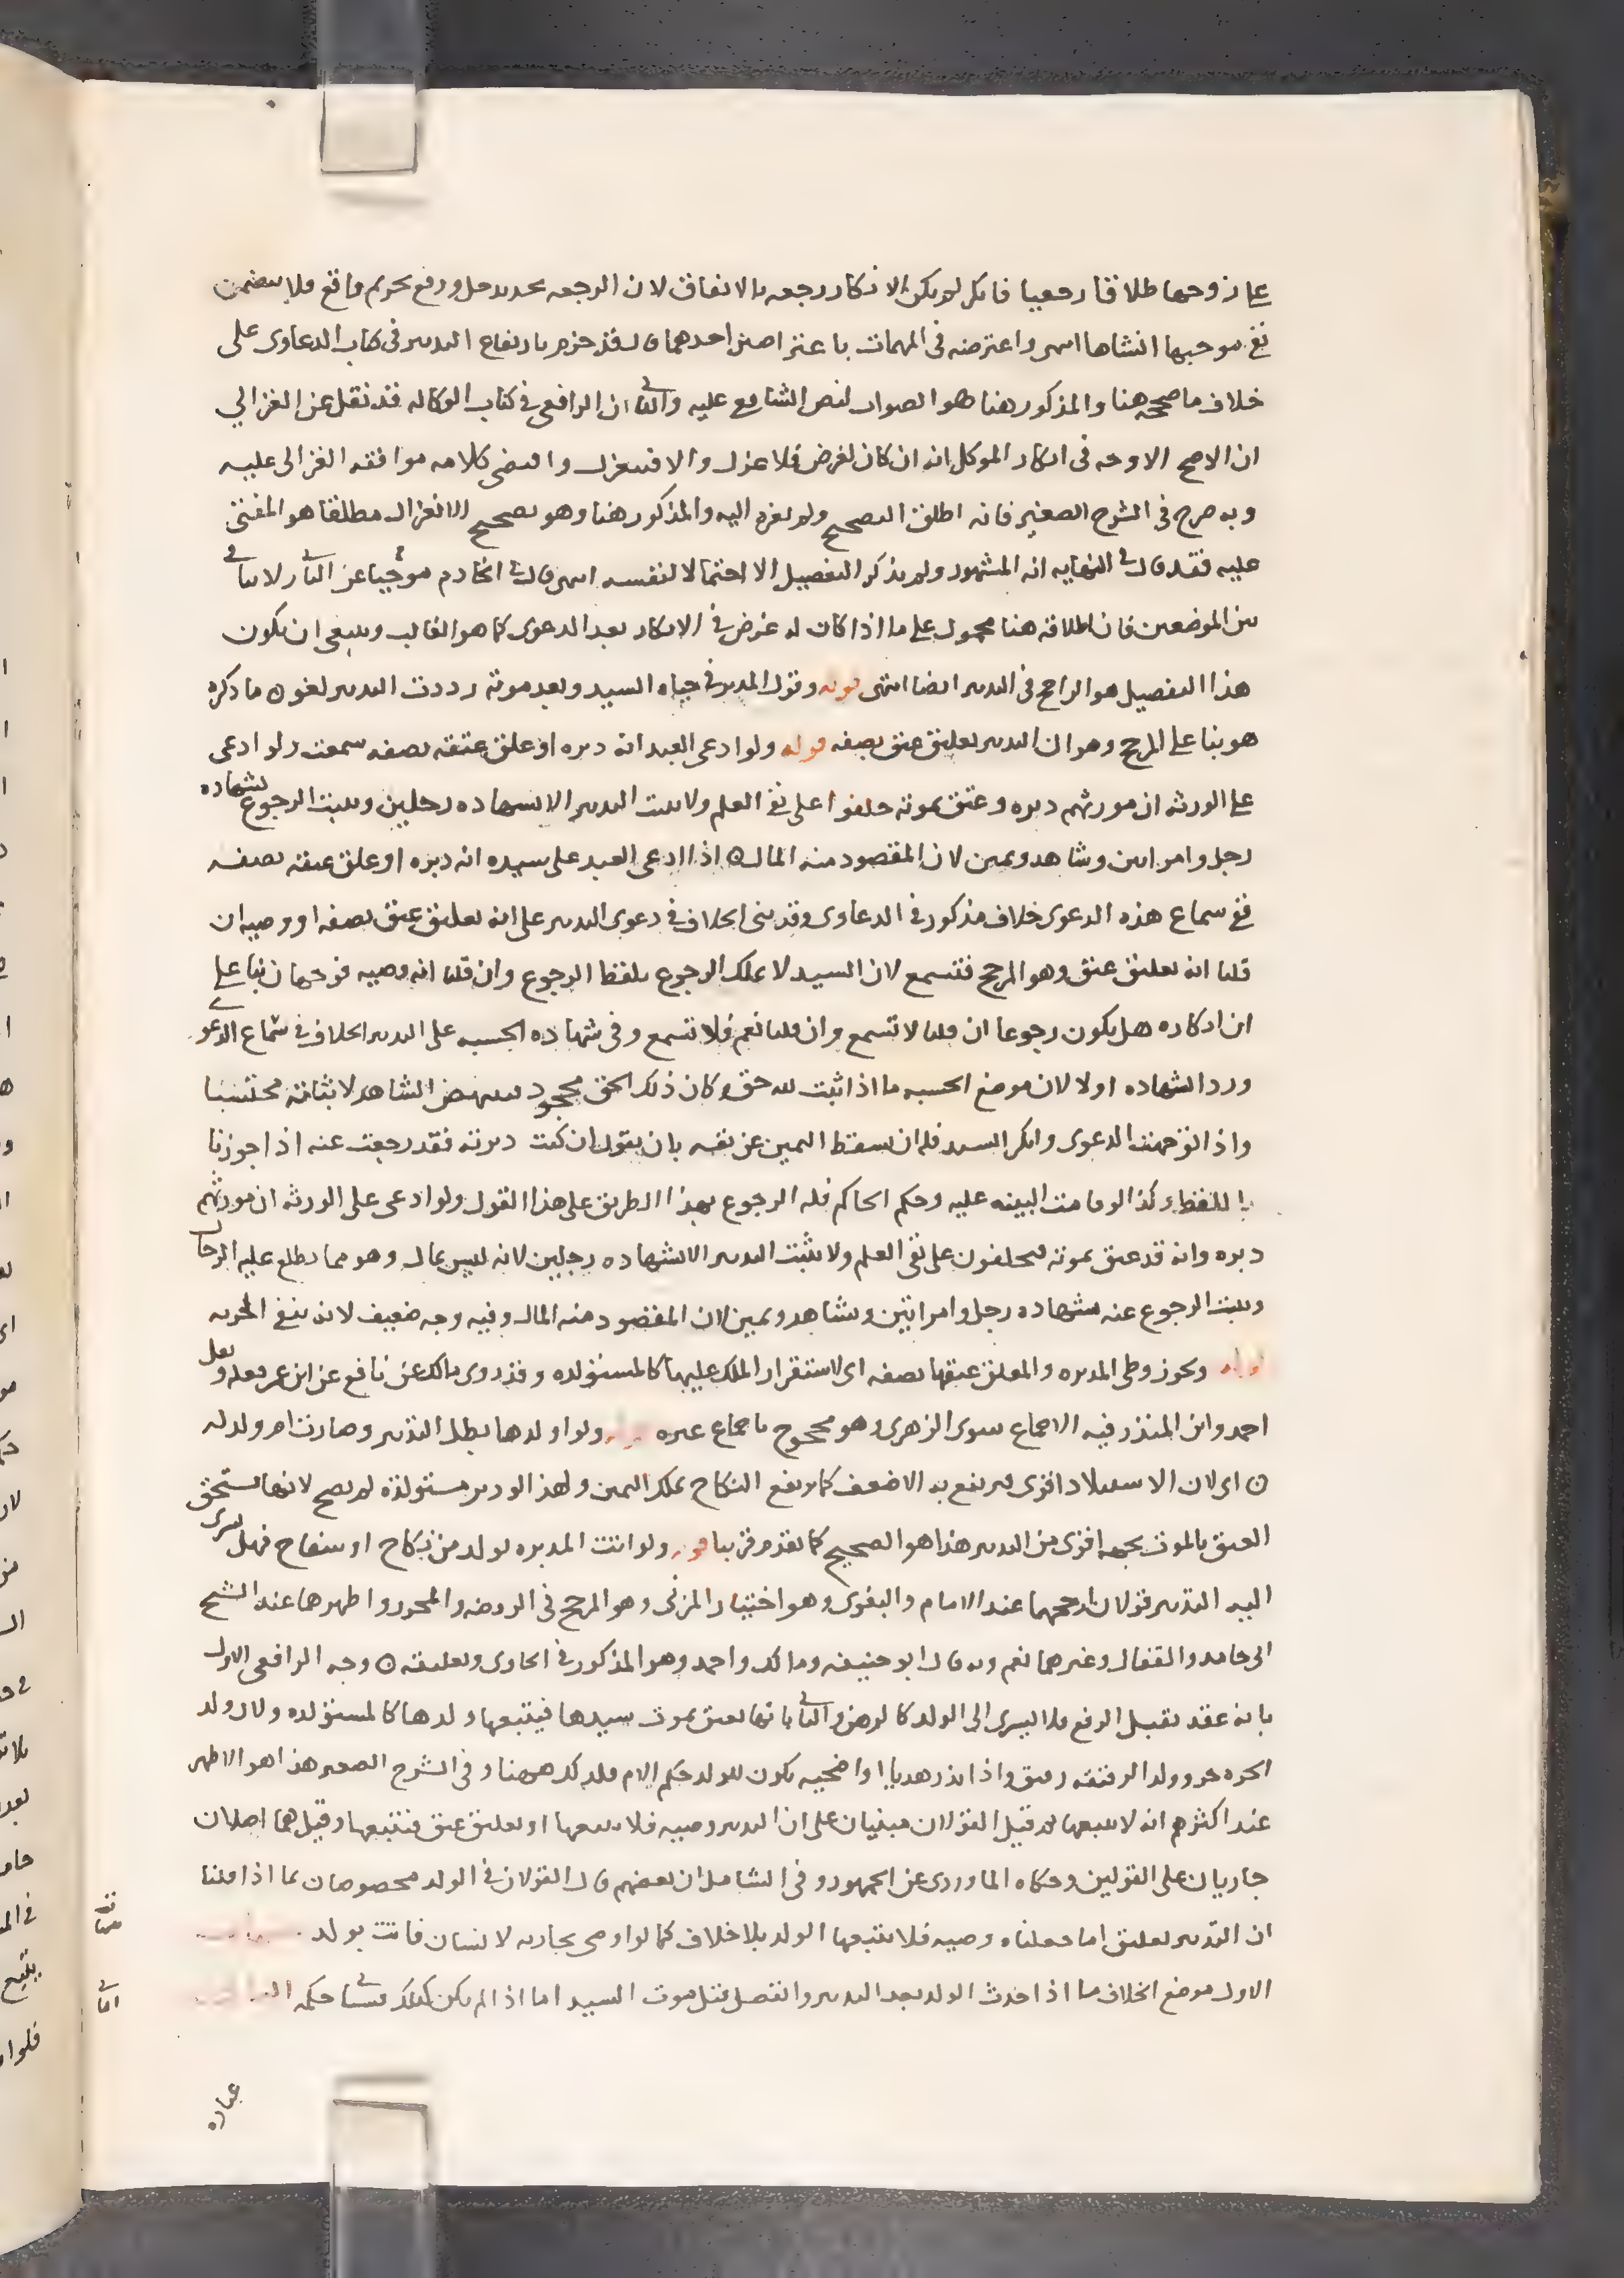 على زوجها طلاقا رجعيا فانكر لم يكن الانكار رجعه بالاتفاق لان الرجعه تجديد حل ورفع تحريم واقع فلا يتضمن
نفي موجبها انشاها انتهى واعترضه في المهمات باعتراضين احدهما قال قد جزم بارتفاع التدبير في كتاب الدعاوى على
خلاف ما صححه هنا والمذكور هنا هو الصواب لنص الشافعي عليه والثاني ان الرافعي في كتاب الوكاله قد نقل عن الغزالي
ان الاصح الاوجه في انكار الموكل انه ان كان لغرض فلا عزل والا فينعزل واقتضى كلامه موافقه الغزالى عليه
وبه صرح في الشرح الصغير فانه اطلق التصحيح ولم يعزه اليه والمذكور هنا وهو تصحيح الانعزال مطلقا هو المفتى
عليه فقد قال في النهايه انه المشهور ولم يذكر التفصيل الا احتمالا لنفسه انتهى قال في الخادم موجها عن الثاني لا تنافي
بين الموضعين فان اطلاقه هنا محمول على ما اذا كان له غرض في الانكار بعد الدعوى كما هو الغالب وينبغي ان يكون
هذا التفصيل هو الراجح في التدبير ايضا انتهى قوله وقول المدبر في حياه السيد وبعد موته رددت التدبير لغو ن ما ذكره
هو بنا على المرجح وهو ان التدبير تعليق عتق بصفه قوله ولو ادعى العبد انه دبره او علق عتقه بصفه سمعت ولو ادعى
على الورثه ان مورثهم دبره وعتق بموته حلفوا على نفي العلم ولا يثبت التدبير الا بشهاده رجلين ويثبت الرجوع بشهاده
رجل وامراتين وشاهد ويمين لان المقصود منه المال ن اذا ادعى العبد على سيده انه دبره او علق عتقه بصفه
ففي سماع هذه الدعوى خلاف مذكور في الدعاوى وقد بني الخلاف في دعوى التدبير على انه تعليق عتق بصفه او وصيه ان
قلنا انه تعليق عتق وهو المرجح فتسمع لان السيد لا يملك الرجوع بلفظ الرجوع وان قلنا انه وصيه فوجهان بناء على
ان انكاره هل يكون رجوعا ان قلنا لا تسمع وان قلنا نعم فلا تسمع وفي شهاده الحسبه على التدبير الخلاف في سماع الدعوى
ورد الشهاده اولا لان موضع الحسبه ما اذا ثبت لله حق وكان ذلك الحق مجحود فينهض الشاهد لاثباته محتسبا
واذا توجهت الدعوى وانكر السيد فله ان يسقط اليمين عن نفسه بان يقول ان كنت دبرته فقد رجعت عنه اذا جوزنا
باللفظ وكذا لو قامت البينه عليه وحكم الحاكم فله الرجوع بهذا الطريق على هذا القول ولو ادعى على الورثه ان مورثهم
دبره وانه قد عتق بموته فيحلفون على نفي العلم ولا يثبت التدبير الا بشهاده رجلين لانه ليس بمال وهو مما يطلع عليه الرجال
ويثبت الرجوع عنه بشهاده رجل وامراتين وشاهد ويمين لان المقصود منه المال وفيه وجه ضعيف لانه ينفي الحريه
قوله ويجوز وطى المدبره والمعلق عتقها بصفه اى لاستقرار الملك عليها كالمستولده وقد روى مالك عن نافع عن ابن عمر فعله ونقل
احمد وابن المنذر فيه الاجماع سوى الزهرى وهو محجوج باجماع غيره قوله ولو اولدها بطل التدبير وصارت ام ولد له
ن اى لان الاستيلاد اقوى فيرتفع به الاضعف كما يرتفع النكاح بملك اليمين ولهذا لو دبر مستولدة لم يصح لانها تستحق
العتق بالموت بجهه اقوى من التدبير هذا هو الصحيح كما تقدم قريبا قوله ولو اتت المدبره بولد من نكاح او سفاح فهل يسرى
اليه التدبير قولان ارجحهما عند الامام والبغوى وهو اختيار المزنى وهو المرجح في الروضه والمحرر واظهرهما عند الشيخ
ابى حامد والقفال وغيرهما نعم وبه قال ابو حنيفه ومالك واحمد وهو المذكور في الحاوى وتعليقه ن وجه الرافعي الاول
بانه عقد يقبل الرفع فلا يسرى الى الولد كالرهن والثاني بانها تعتق بموت سيدها فيتبعها ولدها كالمستولده ولان ولد
الحره حر وولد الرقيقه رقيق واذا نذر هديا او اضحيه يكون للولد حكم الام فليكن كذلك ههنا وفي الشرح الصغير هذا هو الاظهر
عند اكثرهم انه لا يتبعها ثم قيل القولان مبنيان على ان التدبير وصيه فلا يتبعها او تعليق عتق فيتبعها وقيل هما اصلان
جاريان على القولين وحكاه الماوردى عن الجمهور وفي الشامل ان بعضهم قال القولان في الولد مخصوصان بما اذا قلنا
ان التدبير تعليق اما جعلناه وصيه فلا يتبعها الولد بلا خلاف كما لو اوصى بجاريه لانسان فاتت بولد
الاول موضع الخلاف ما اذا حدث الولد بعد التدبير وانفصل قبل موت السيد اما اذا لم يكن كذلك فسياتي حكمه
عباره